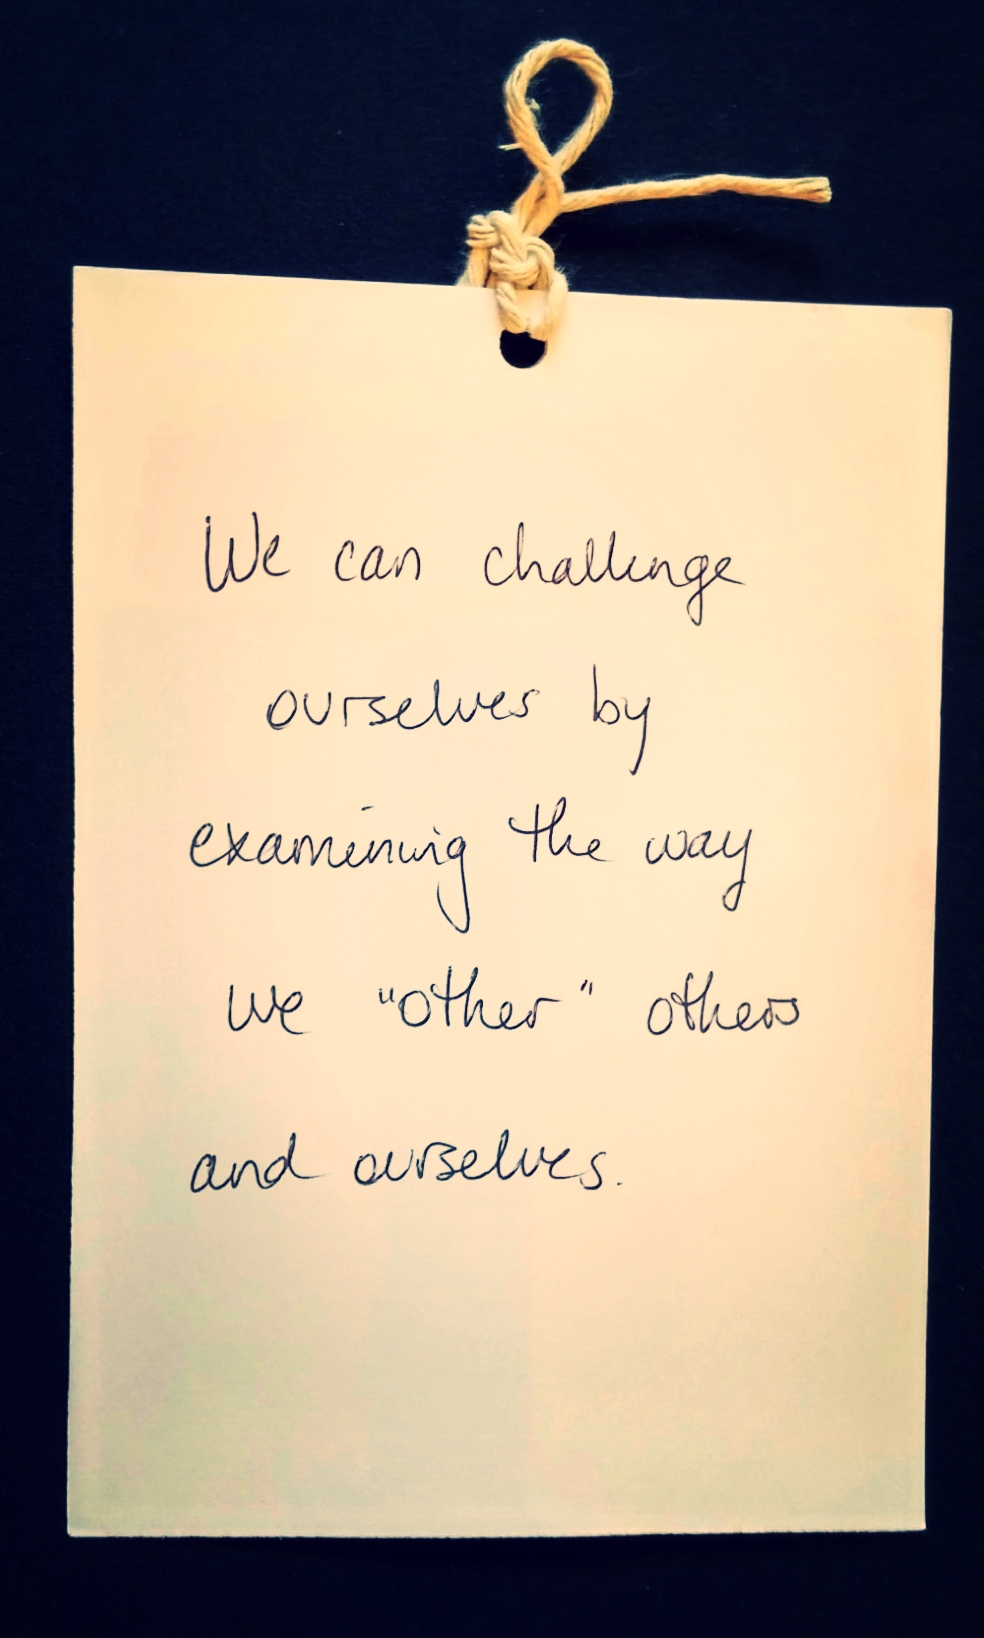 We can challenge
ourselves by
examining the way
we "other" others
and ourselves.